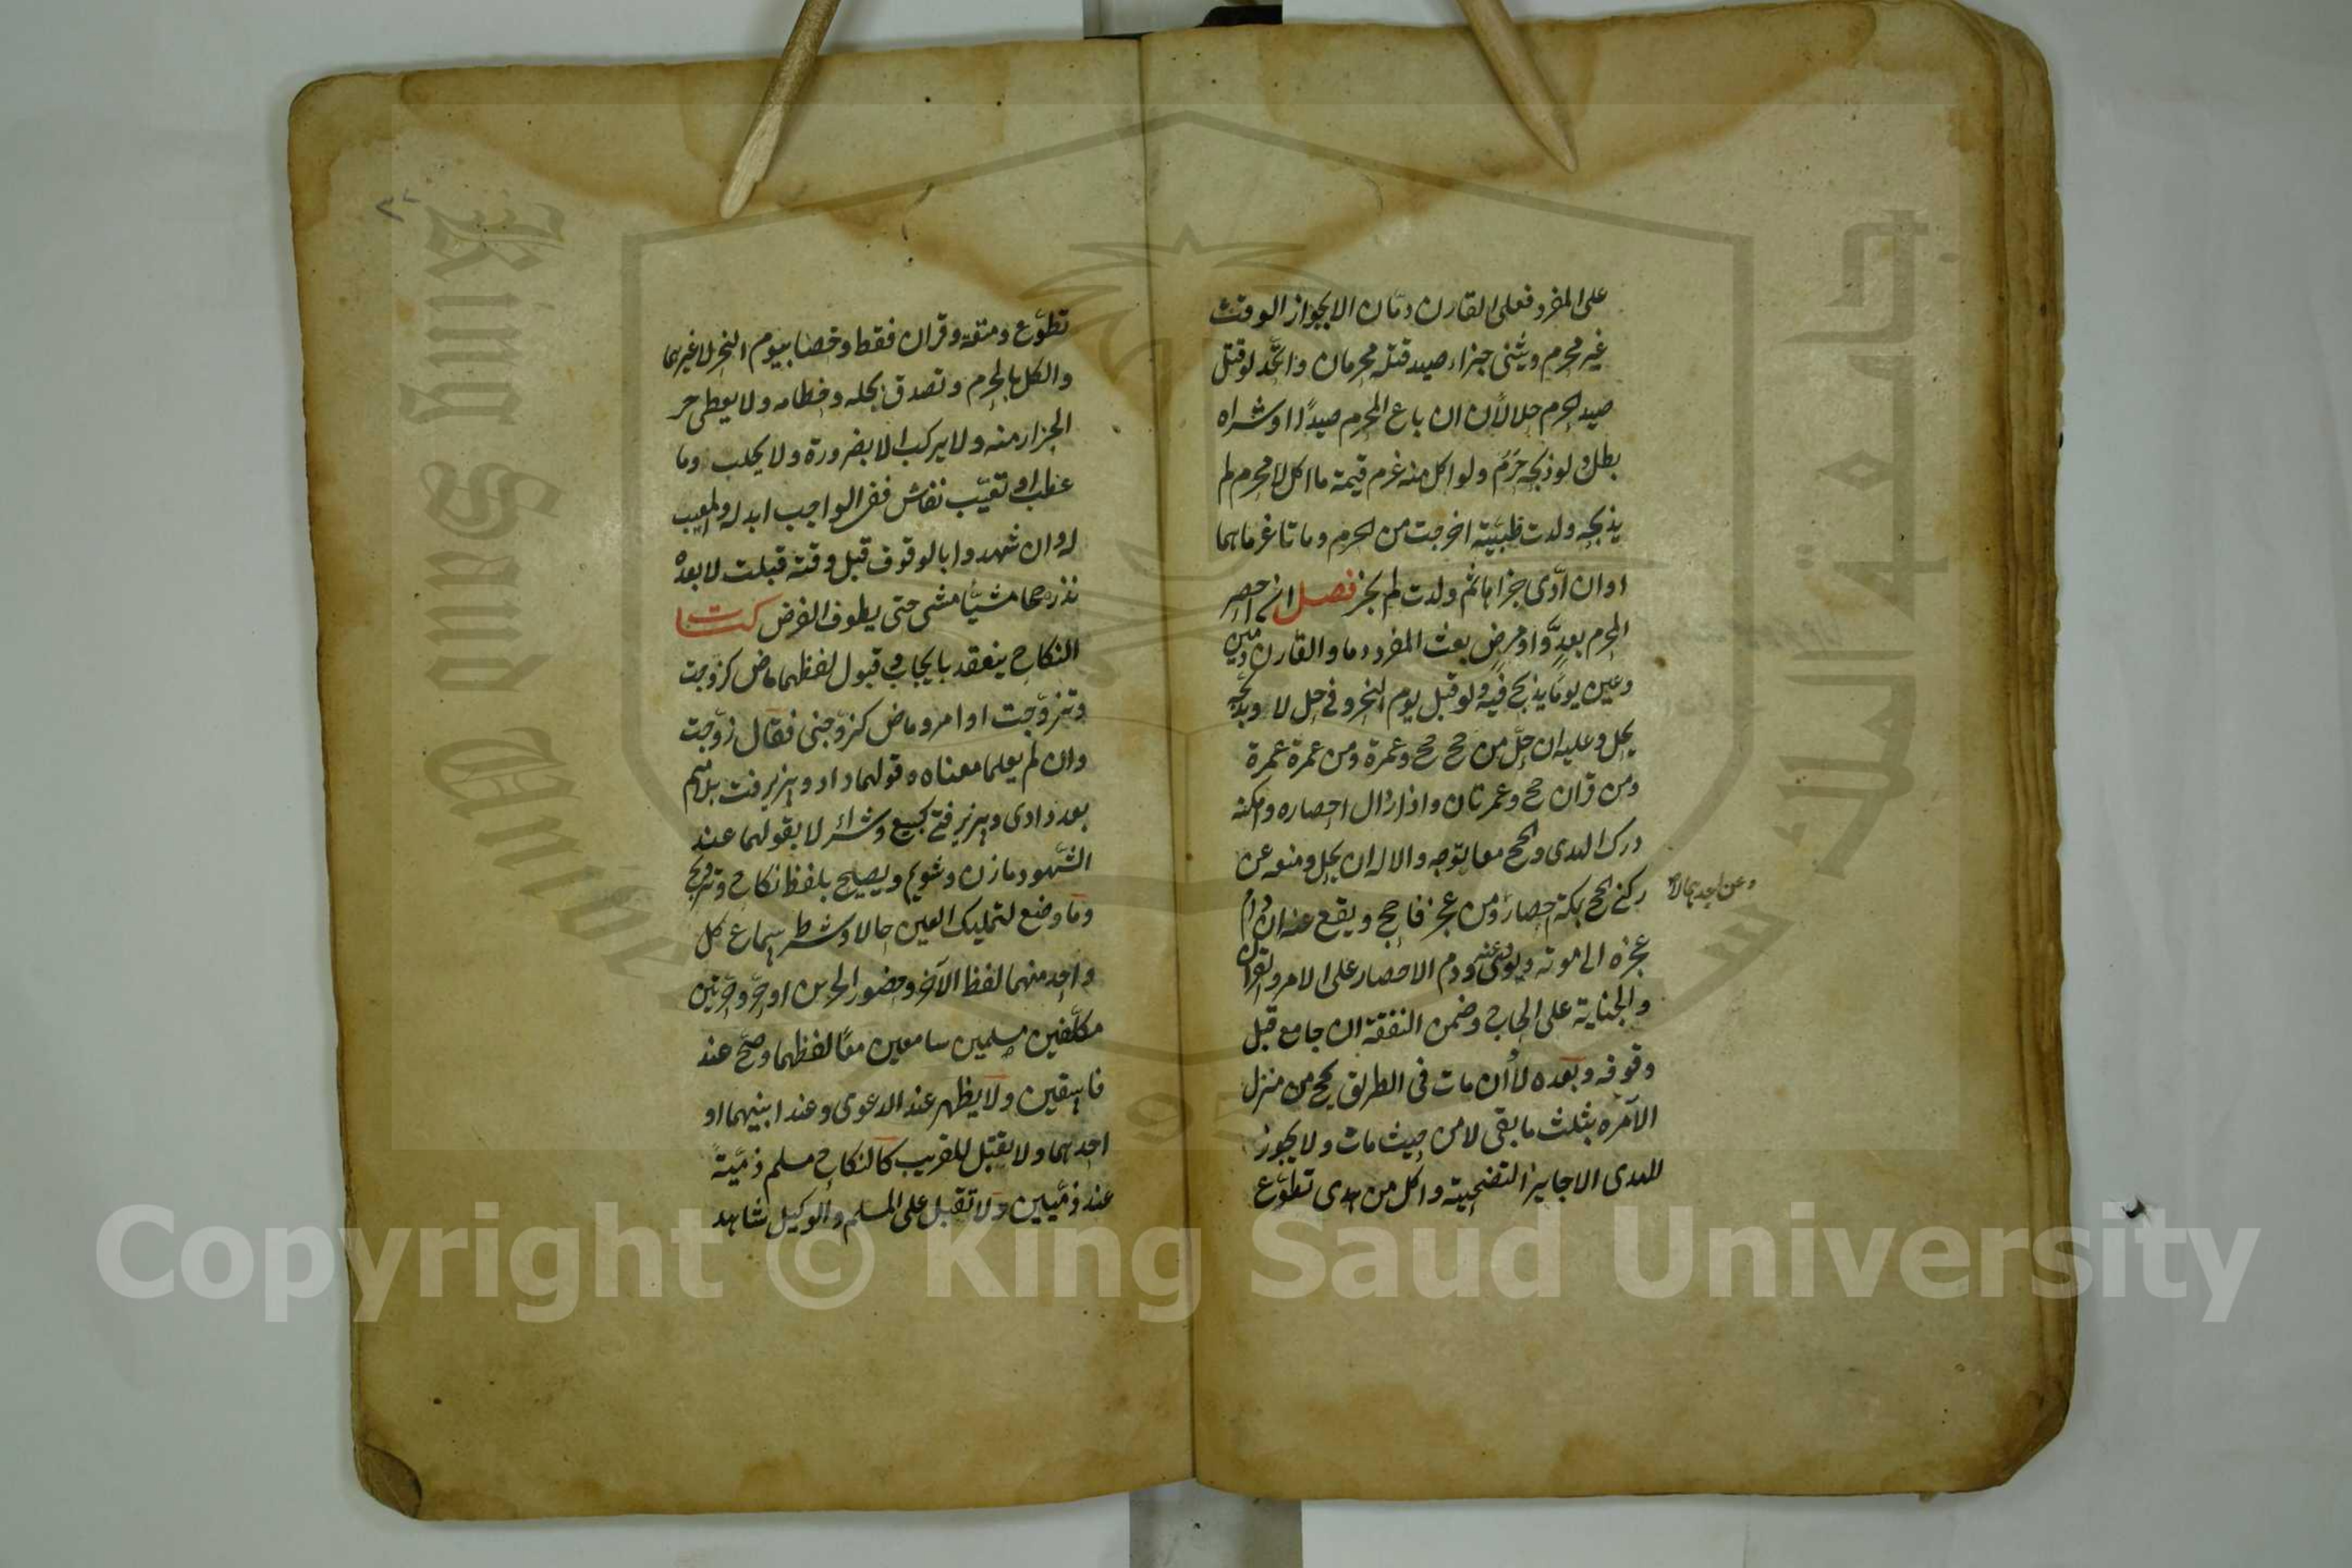 على المفرد فعلى القارن دمان الا بجواز الوقت
غير محرم ويثنى جزاء صيد قتله محرمان واتحد لو قتل
صيد الحرم حلالان ان باع المحرم صيدًا او شراه
بطل ولو ذبحه حرم ولو اكل منه غرم قيمة ما اكل لا محرم لم
يذبحه ولدت ظبية اخرجت من الحرم وماتا غرماهما
او ان ادى جزاها ثم ولدت لم يجز فصل ان احصر
المحرم بعدو او مرض بعث المفرد دما والقارن دمين
وعين يوما يذبح فيه ولو قبل يوم النحر وفي حل لا وبذبحه
يحل وعليه ان حل من حج حج وعمرة ومن عمرة عمرة
ومن قران حج وعمرتان واذا زال احصاره وامكنه
درك الهدى والحج معا يتوجه والا له ان يحل ومنعه عن
ركنى الحج بمكة احصار ومن عجز فاحج ويقع عنه ان دام
وعن احدهما لا
عجزه الى موته ونوى عنه ودم الاحصار على الآمر والقران
والجناية على الحاج وضمن النفقة ان جامع قبل
وقوفه وبعده لا وان مات فى الطريق يحج من منزل
الآمره بثلث ما بقى لا من حيث مات ولا يجوز
للهدى الا جايز التضحية واكل من هدى تطوع
تطوع ومتعة وقران فقط وخصا بيوم النحر لا غيرهما
والكل بالحرم وتصدق بجله وخطامه ولا يعطى اجر
الجزار منه ولا يركب الا بضرورة ولا يحلب وما
عطب او تعيب بفاحش ففى الواجب ابدله والمعيب
له وان شهدوا بالوقوف قبل وقته قبلت لا بعده
نذر حجا مشيا مشى حتى يطوف الفرض كتاب
النكاح ينعقد بايجاب وقبول لفظهما ماض كزوجت
وتزوجت او امر وماض كزوجنى فقال زوجت
وان لم يعلما معناه وقولهما داد وپذيرفت بلا ميم
بعد دادى وپذيرفتى كبيع وشراء لا بقولهما عند
الشهود ما زن وشويم ويصح بلفظ نكاح وتزويج
وما وضع لتمليك العين حالا وشرط سماع كل
واحد منهما لفظ الآخر وحضور حرين او حر وحرتين
مكلفين مسلمين سامعين معا لفظهما وصح عند
فاسقين ولا يظهر عند الدعوى وعند ابنيهما او
احدهما ولا يقبل للقريب كالنكاح مسلم ذمية
عند ذميين ولا تقبل على المسلم والوكيل شاهد
King Saud University
جامعة الملك سعود
1957
Copyright © King Saud University